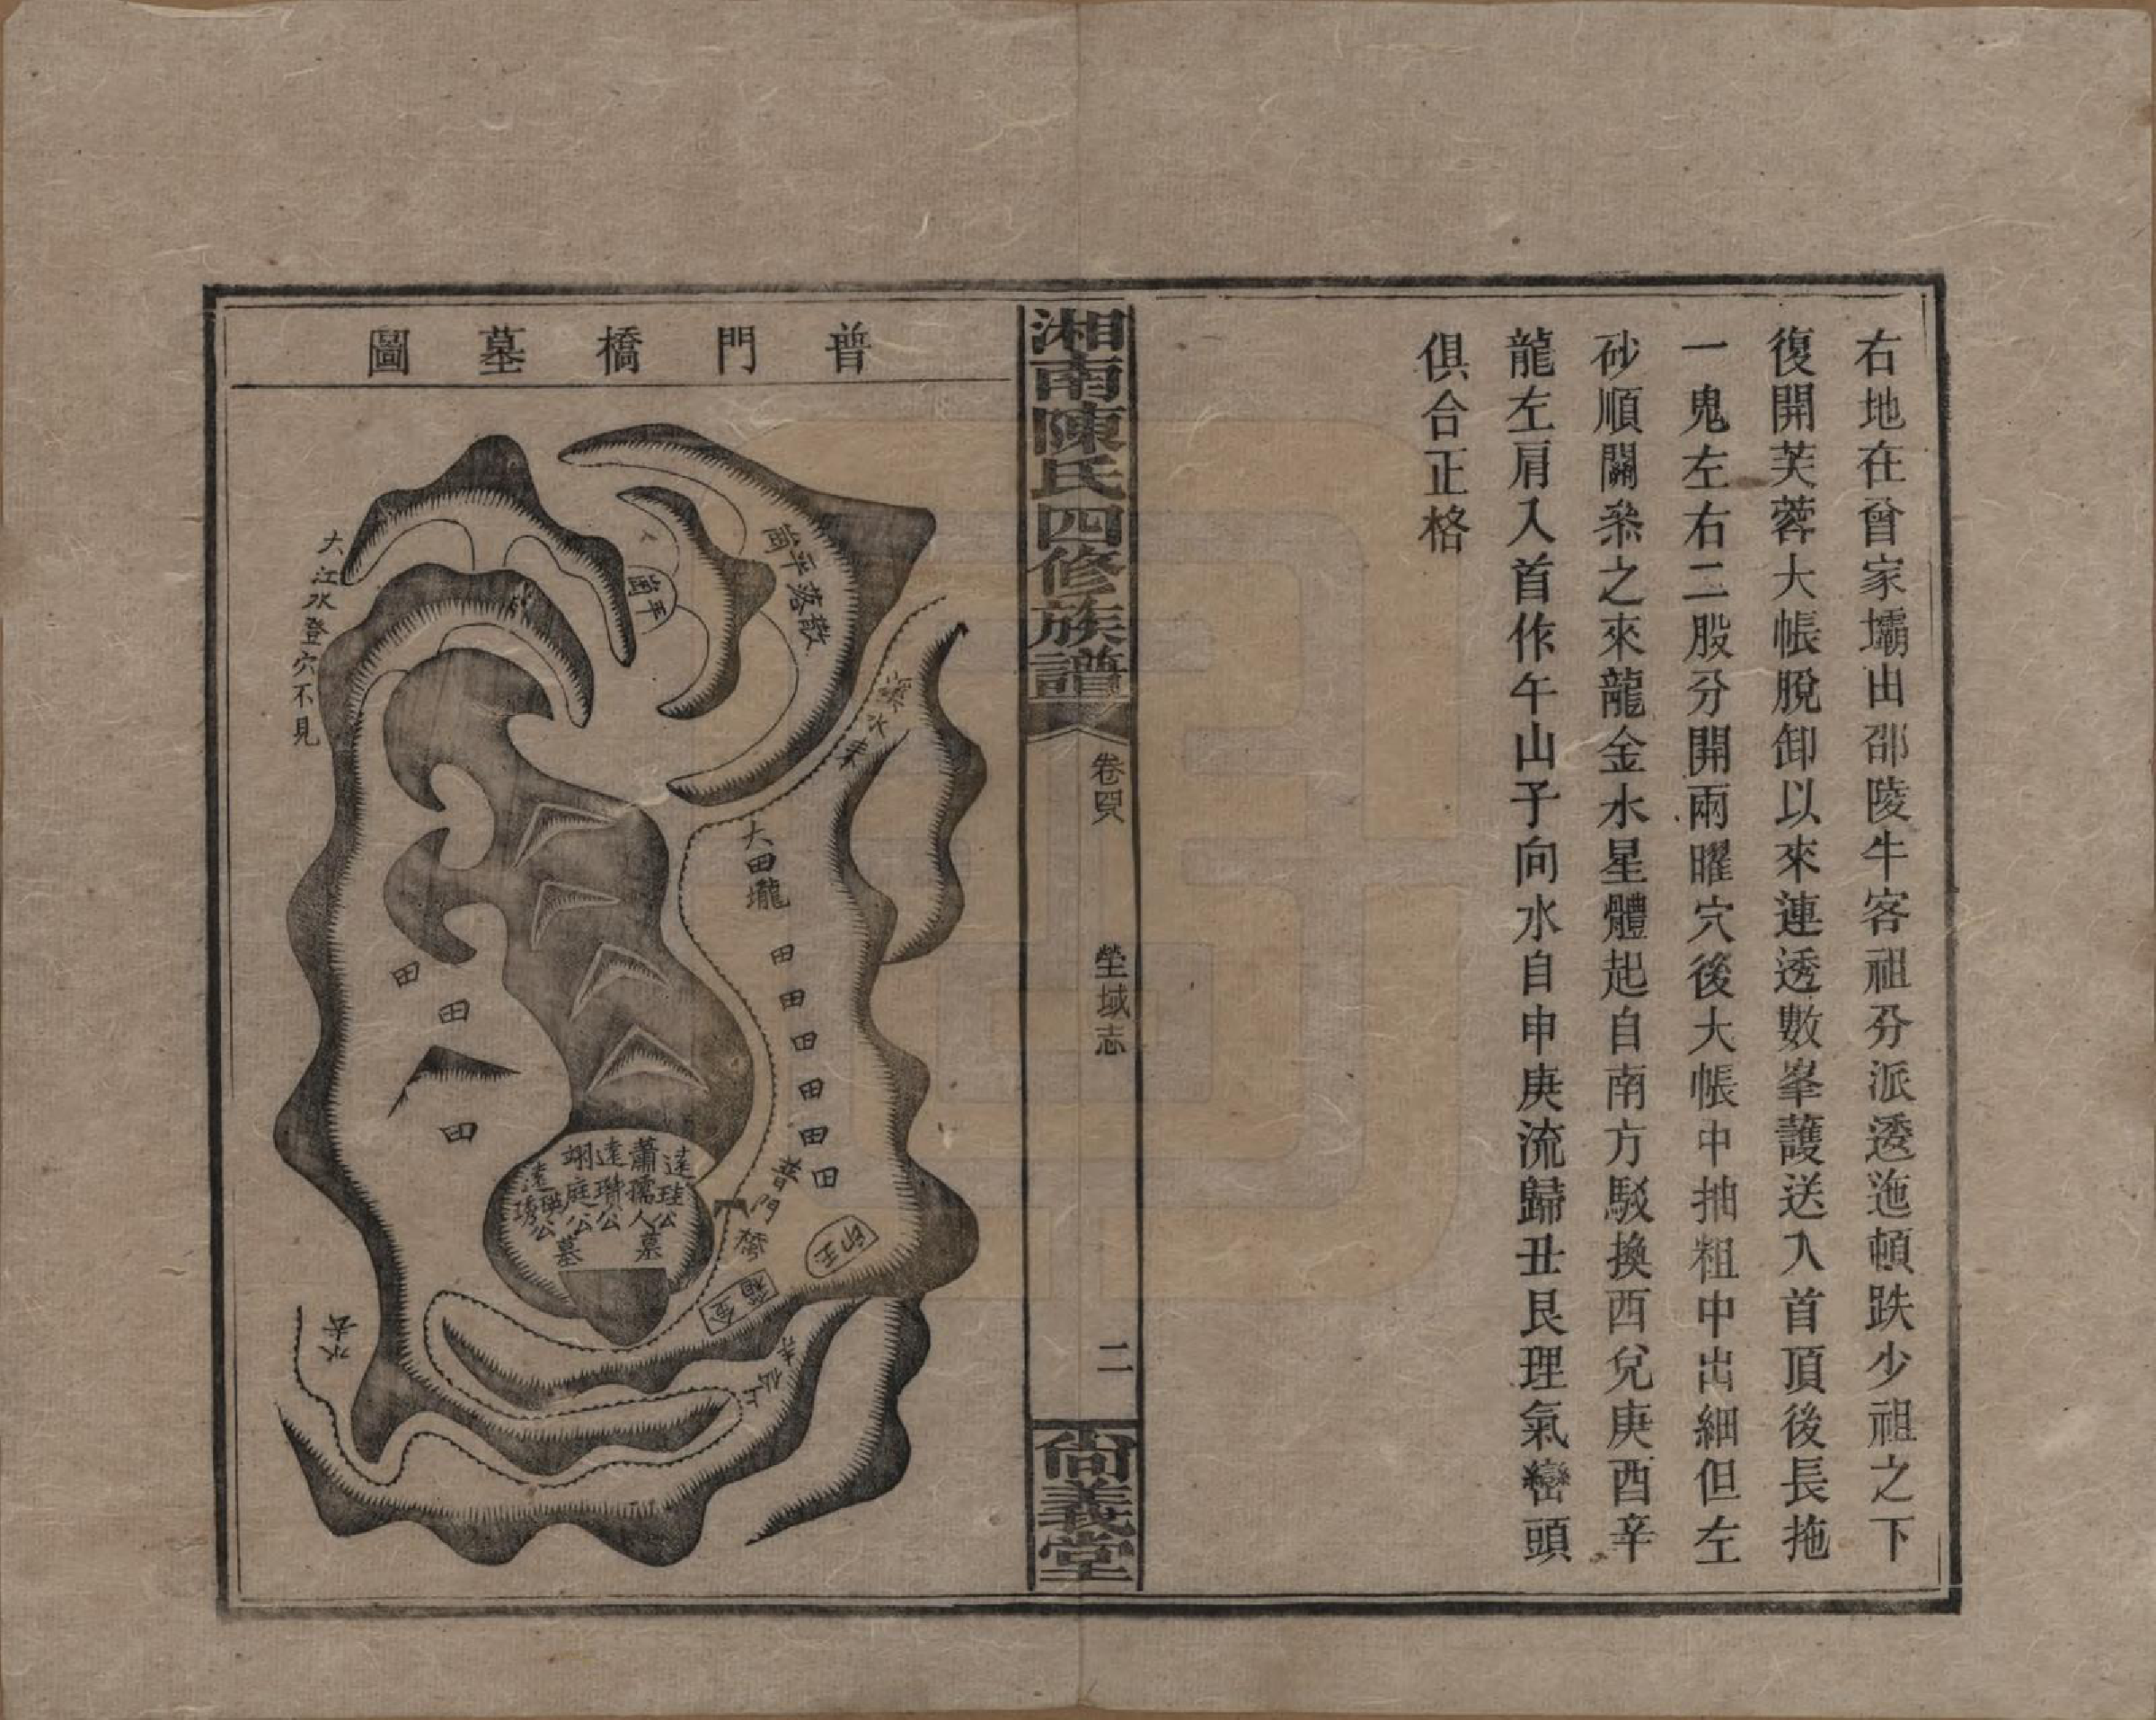 右地在曾家壩由邵陵牛客祖分派透迤頓跌少祖之下
復開芙蓉大帳脫卸以來連透數峯護送入首頂後長拖
一鬼左右二股分開兩曜穴後大帳中抽粗中出細但左
砂順關叅之來龍金水星體起自南方駁換西兌庚酉辛
龍左肩入首作午山子向水自申庚流歸丑艮理氣巒頭
俱合正格
湘南陳氏四修族譜
卷四
塋域志
二
尚義堂
普門橋墓圖
大江水登穴不見
崗平落散
崗平
水來
大田壠
田
田
田
田
田
田
田
田
田
普門橋
玉印
金箱
水去
達珪公
蕭孺人
墓
達瓚公
翊庭公
達瑛公
墓